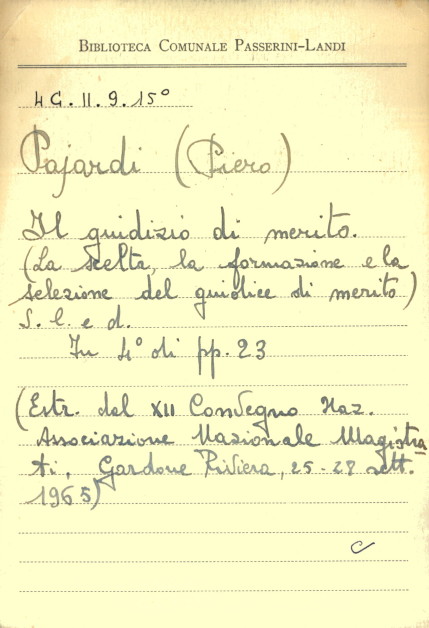 BIBLIOTECA COMUNALE PASSERINI-LANDI
4G.II.9.15°
Pajardi (Piero)
Il guidizio di merito.
(La scelta, la formazione e la
selezione del guidice di merito)
S. l. e d.
In 4° di pp. 23
(Estr. dal XII Convegno Naz.
Associazione Nazionale Magistra
ti, Gardone Riviera, 25-28 sett.
1965)
c